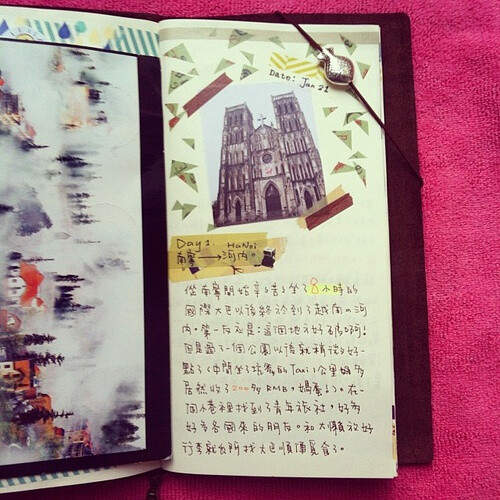 Date: Jan 21
Day 1. HaNoi
南寧 → 河内。
從南寧開始辛苦坐了8小時的
國際大巴以後終於到了越南的河
内。第一反應是:這個地方好
但是過了一個公園以後就稍微好一
點了(中間坐了坑爹的Taxi 1公里
居然收了200多RMB,)。在一
個小巷裡找到了青年旅社,好多
好多各國來的朋友。和大順放好
行李就去附近找大巴順便覓食了。